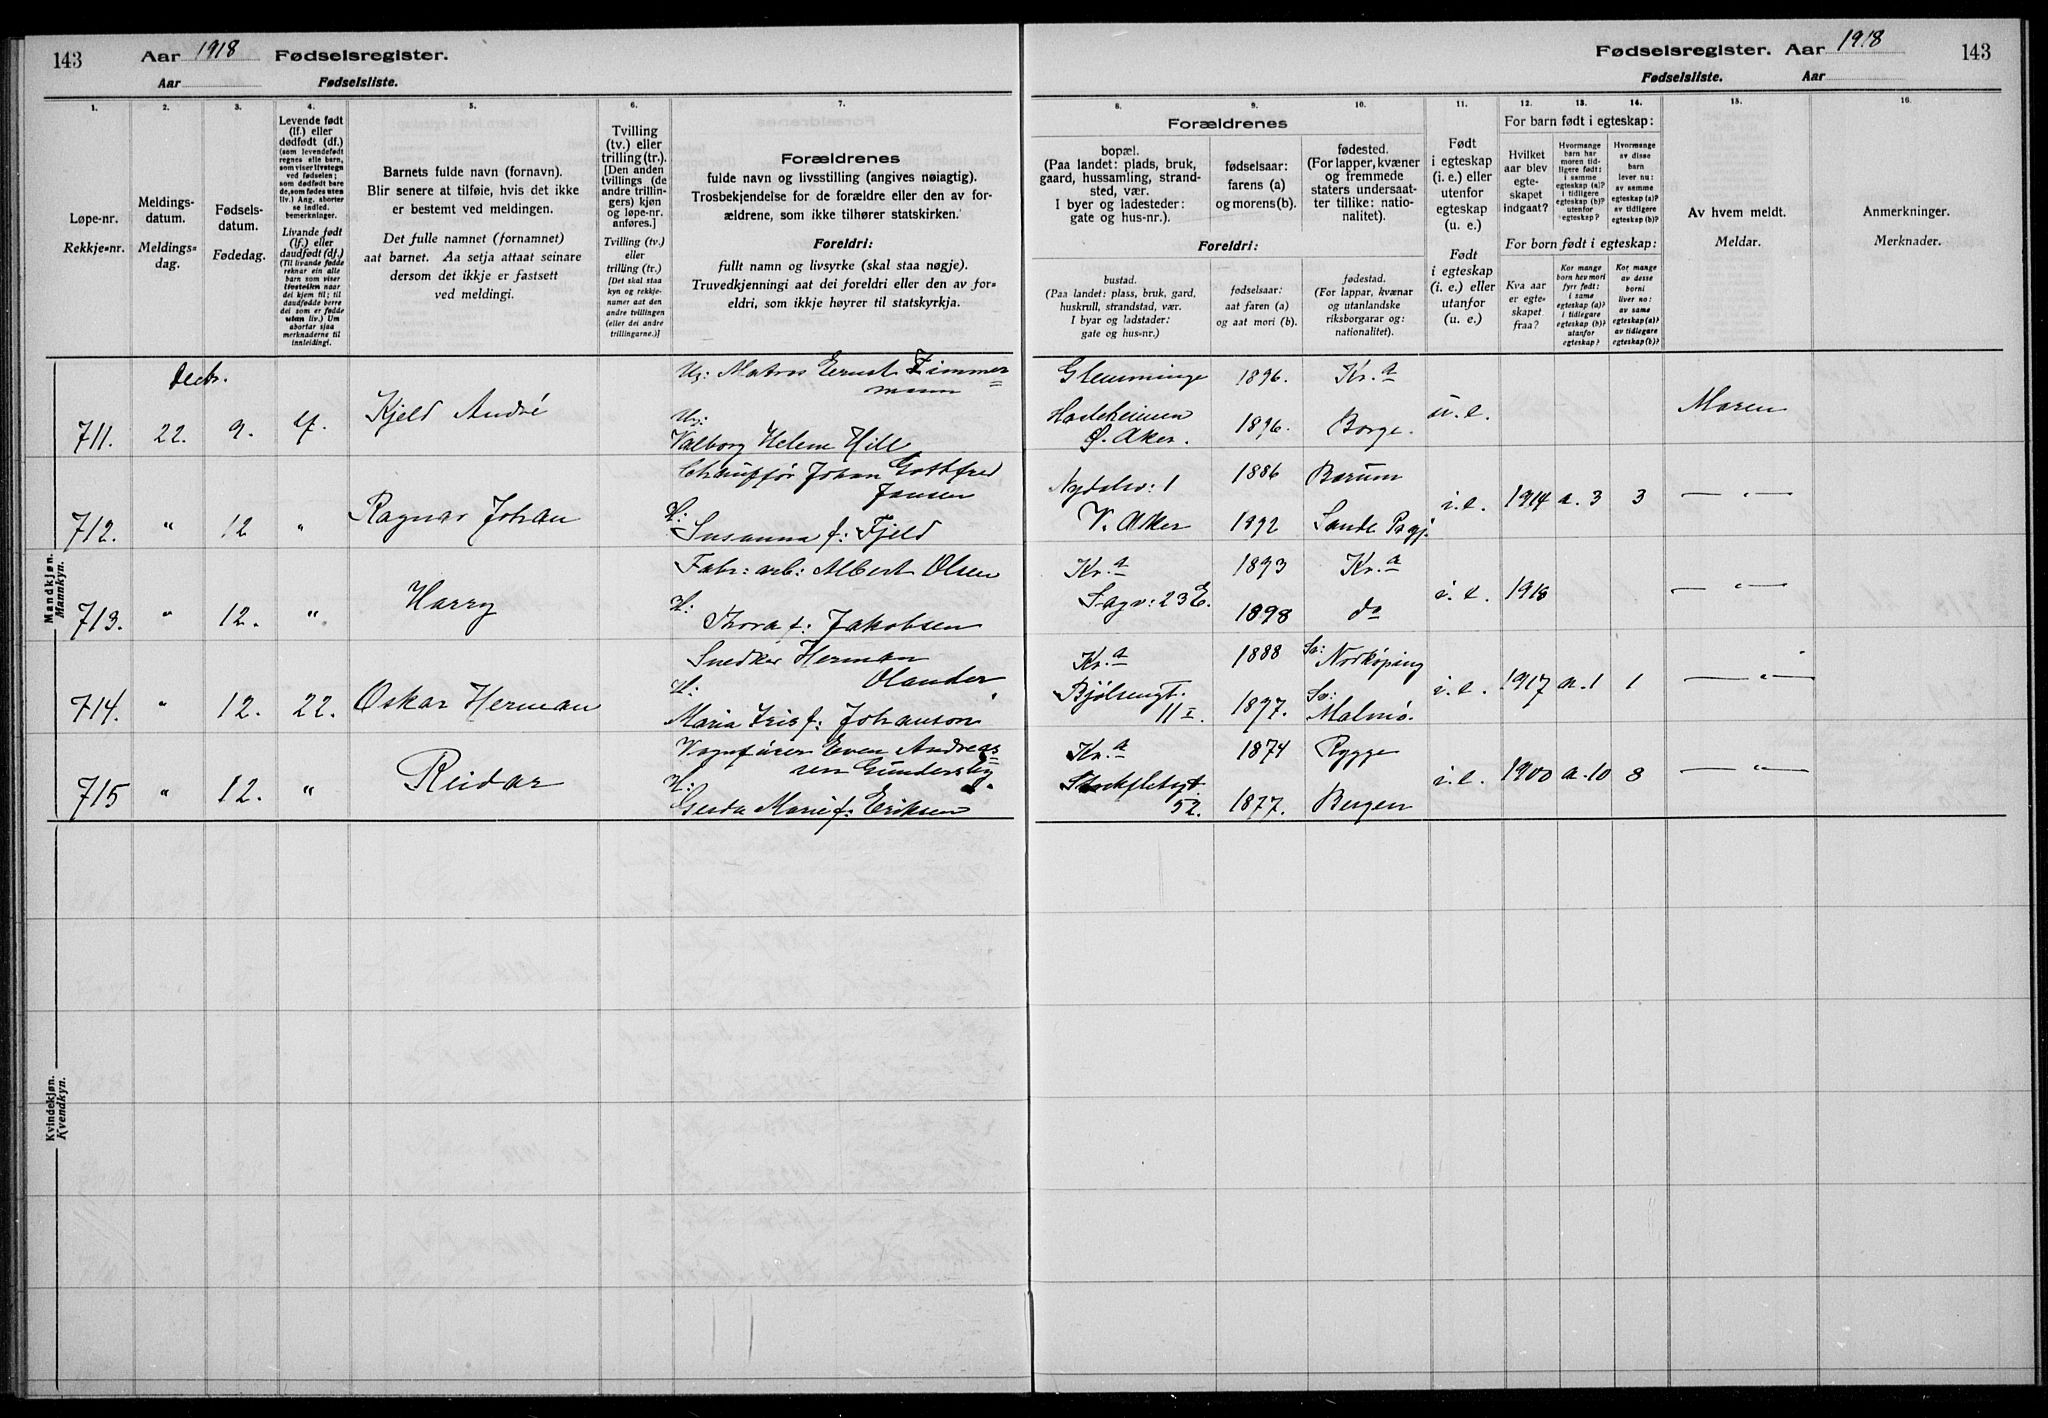 143 Aar 1918 Fødselsregister.
Aar Fødselsliste.
Fødselsregister. Aar 1918 143
Fødselsliste. Aar
1. 2. 3. 4. 5. 6. 7. 8. 9. 10. 11. 12. 13. 14. 15. 16.
Løpe-nr.
Rekkje-nr.
Meldings-
datum.
Meldings-
dag.
Fødsels-
datum.
Fødedag.
Levende født
(lf.) eller
dødfødt (df.)
Livande født
(lf.) eller
daudfødt (df.)
Barnets fulde navn (fornavn).
Blir senere at tilføie, hvis det ikke
er bestemt ved meldingen.
Det fulle namnet (fornamnet)
aat barnet. Aa setja attaat seinare
dersom det ikkje er fastsett
ved meldingi.
Tvilling
(tv.) eller
trilling (tr.).
[Den anden
tvillings (de
andre trillin-
gers) kjøn
og løpe-nr.
anføres.]
Tvilling (tv.)
eller
trilling (tr.)
[Det skal staa
kyn og rekkje-
numer aat den
andre tvillingen
(eller dei andre
trillingarne.)]
Forældrenes
fulde navn og livsstilling (angives nøiagtig).
Trosbekjendelse for de forældre eller den av for-
ældrene, som ikke tilhører statskirken.
Foreldri:
fullt namn og livsyrke (skal staa nøgje).
Truvedkjenningi aat dei foreldri eller den av for-
eldri, som ikkje høyrer til statskyrkja.
Forældrenes
bopæl.
(Paa landet: plads, bruk,
gaard, hussamling, strand-
sted, vær.
I byer og ladesteder:
gate og hus-nr.).
fødselsaar:
farens (a)
og morens (b).
fødested.
(For lapper, kvæner
og fremmede
staters undersaat-
ter tillike: natio-
nalitet).
Foreldri:
bustad.
(Paa landet: plass, bruk, gard,
huskrull, strandstad, vær.
I byar og ladstader:
gate og hus-nr.)
fødselsaar:
aat faren (a)
og aat mori (b).
fødestad.
(For lappar, kvænar
og utanlandske
riksborgarar og:
nationalitet).
Født
i egteskap
(i. e.) eller
utenfor
egteskap
(u. e.)
Født
i egteskap
(i. e.) eller
utanfor
(u. e.)
For barn født i egteskap:
Hvilket
aar blev
egte-
skapet
indgaat?
Hvormange
barn har
moren tid-
ligere født:
i samme
egteskap (a)?
i tidligere
egteskap (b)?
utenfor
egteskap?
Hvormange
av disse
barn
lever nu:
av samme
egteskap (a)?
av tidligere
egteskap (b)?
For born født i egteskap:
Kva aar
er egte-
skapet
fraa?
Kor mange
born hev mori
fyrr født:
i same
egteskap (a)?
i tidlegare
egteskap (b)?
utanfor
egteskap?
Kor mange
av desse
borni
liver no:
av same
egteskap (a)?
av tidlegare
egteskap (b)?
Av hvem meldt.
Meldar.
Anmerkninger.
Merknader.
Mandkjøn.
Mannkyn.
Decbr. Ug: Matros Ernst Zimmer= Glemminge 1896. Kr.a
mann
711. 22. 9. lf. Kjeld André u.e. Moren
Ug:
Valborg Helene Hill Ø. Aker. 1896. Borge.
Chauffør Johan Gottfred 1886 Bærum
Jansen Nydalsv: 1
712. " 12 " Ragnar Johan H: i.e. 1914 a. 3 3 — " —
Susanna f: Fjeld V. Aker 1892 Sande Prgj.
Fabr: arb: Albert Olsen Kr.a 1893 Kr.a
713. " 12. " Harry H: Sagv: 23 E. i.e. 1918 — " —
Thora f: Jakobsen 1898 do
Snedker Herman Kr.a 1888 Sv: Norköping
Olander
714. " 12. 22. Oskar Herman H: Bjølsengt. i.e. 1917 a. 1 1 — " —
Maria Iris f: Johanson 11 I. 1897. Sv: Malmø.
Vognfører Even Andreas= Kr.a 1874 Rygge
sen Gundersby
715 " 12. " Reidar H: i.e. 1900 a. 10 8 — " —
Gerda Marie f: Eriksen 52. 1877. Bergen
Kvindekjøn.
Kvendkyn.